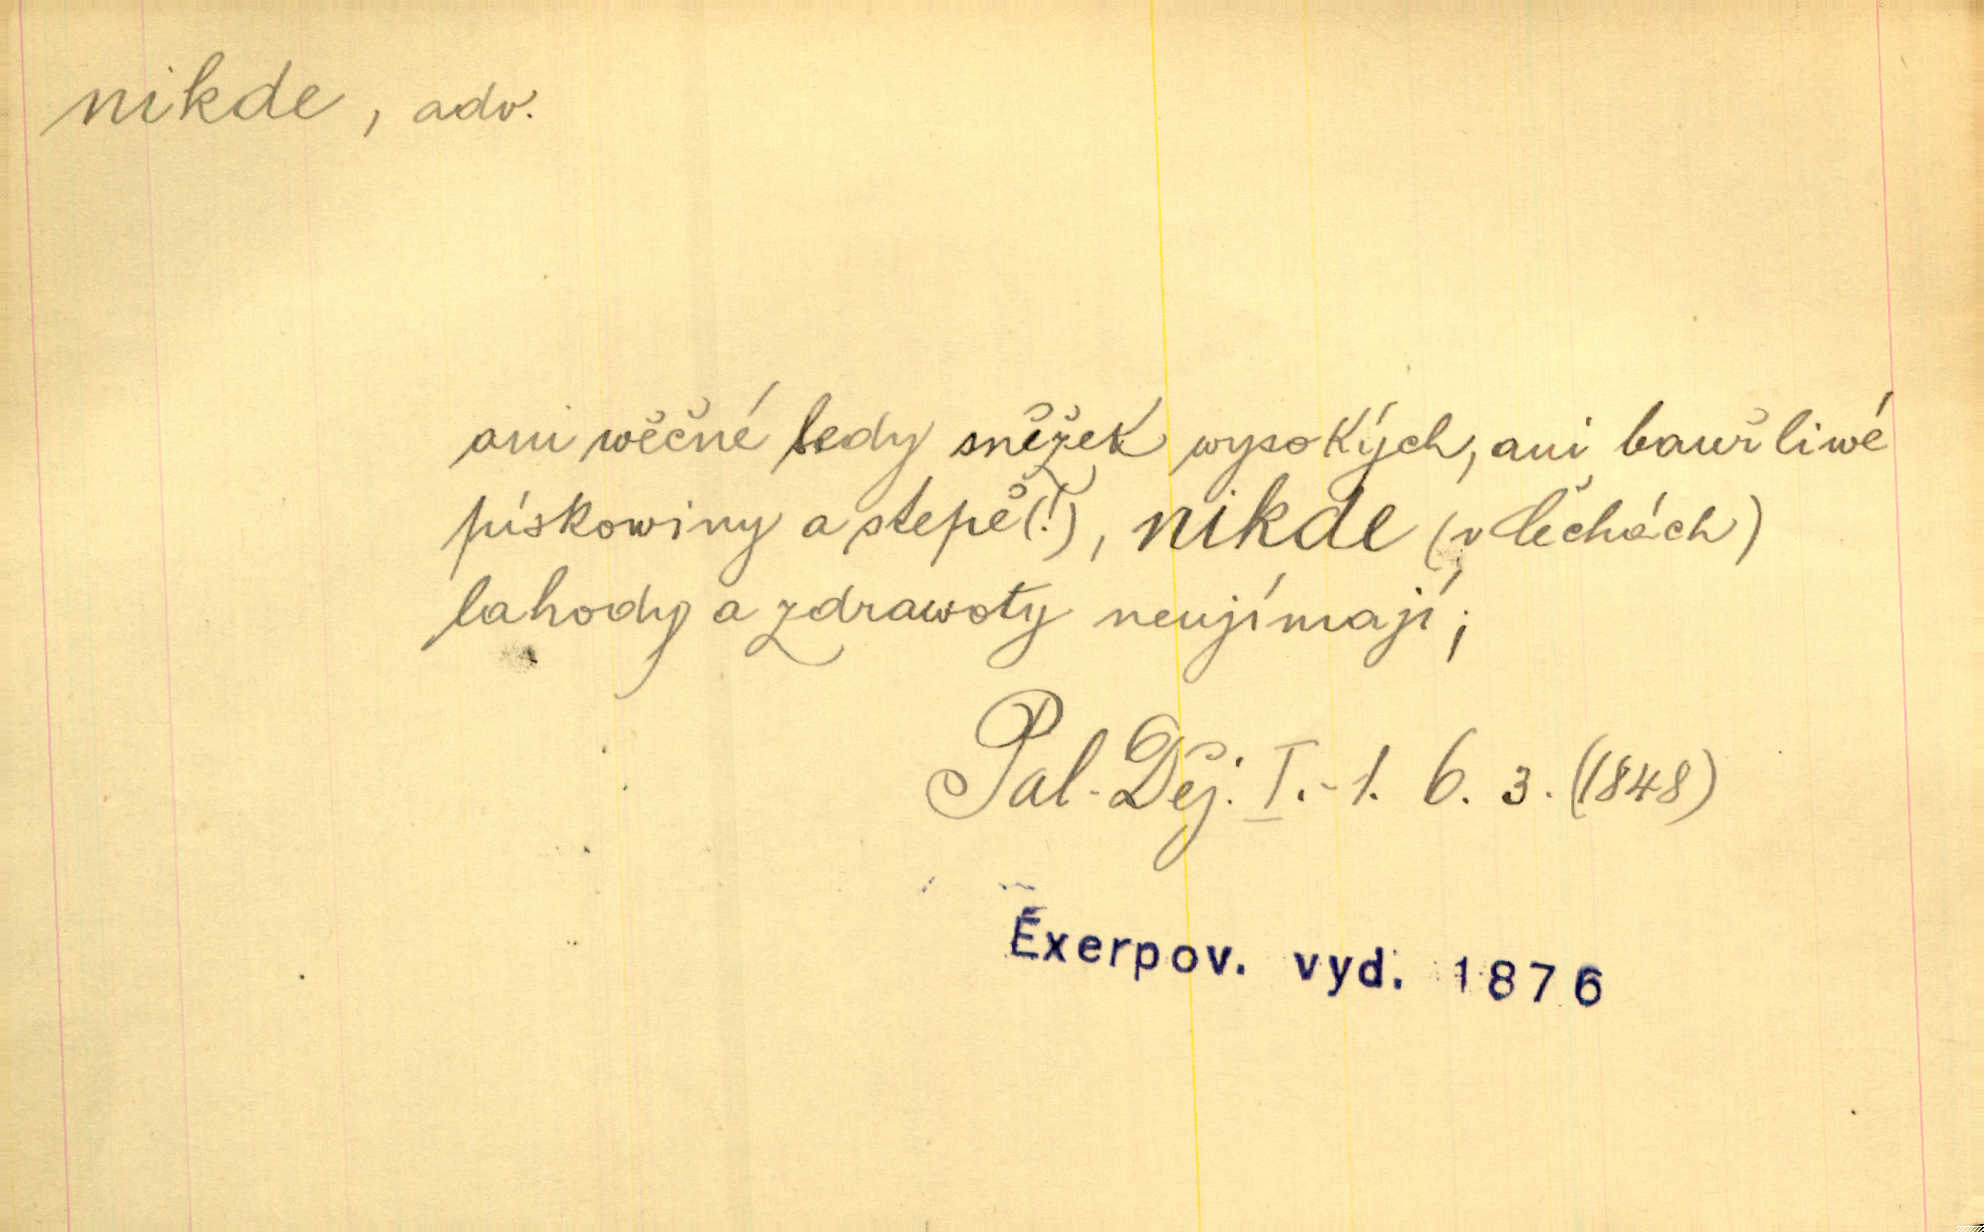 nikde, adv.
ani wěčné ledy sněžek wysokých, ani bauřliwé
pískowiny a stepě(!), nikde (v Čechách)
lahody a zdrawoty neujímají;
Pal. Děj. I.-1. 6. 3. (1848)
Exerpov. vyd. 1876